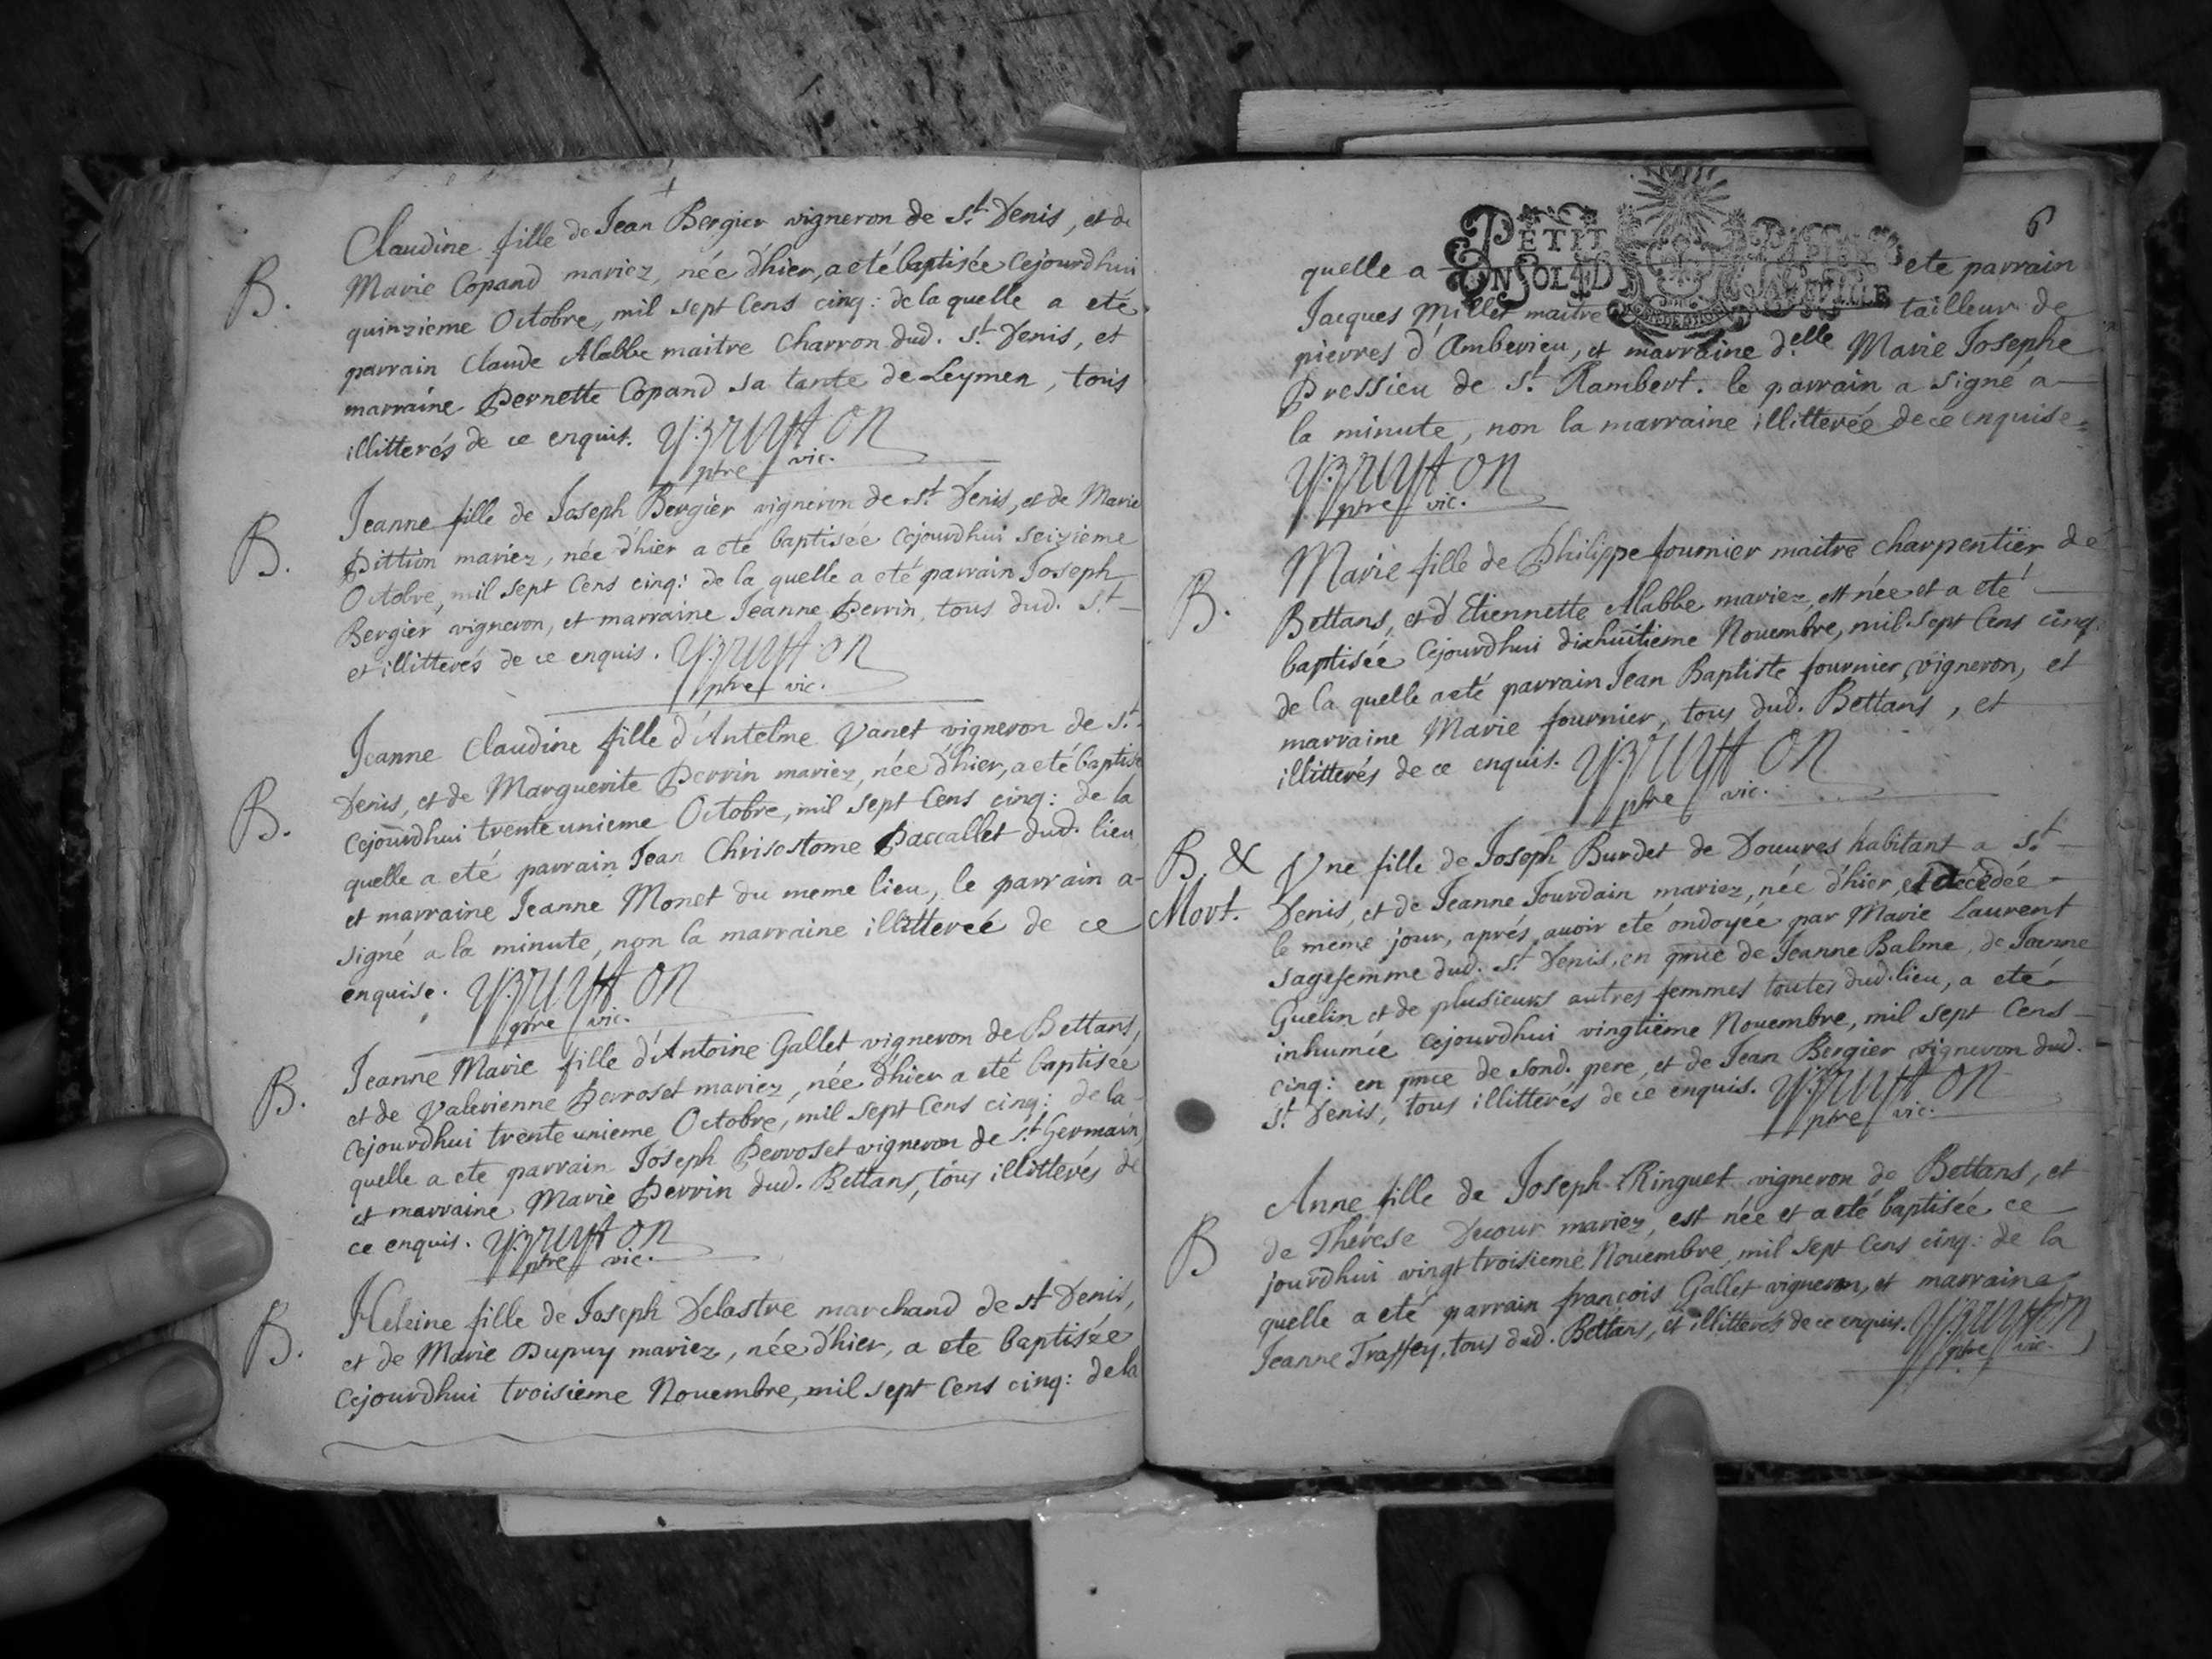 Claudine fille de Jean Bergier vigneron de St Denis, et de
B. Marie Copand mariez, née d'hier, a eté baptisée Cejourdhui
quinzieme Octobre, mil sept Cens cinq: de la quelle a eté
parrain Claude Alabbe maitre Charron dud. St Denis, et
marraine Pernette Copand sa tante de Leymen, tous
illitterés de ce enquis. YBruyson
ptre vic.
Jeanne fille de Joseph Bergier vigneron de St Denis, et de Marie
B. Pittion mariez, née d'hier a eté baptisée Cejourdhui seizieme
Octobre, mil sept Cens cinq: de la quelle a eté parrain Joseph
Bergier vigneron, et marraine Jeanne Perrin, tous dud. St
et illitterés de ce enquis. YBruyson
ptre vic.
Jeanne Claudine fille d'Antelme Vanet vigneron de St
B. Denis, et de Marguerite Perrin mariez, née d'hier, a eté baptisé
Cejourdhui trente unieme Octobre, mil sept Cens cinq: de la
quelle a eté parrain Jean Chrisostome Paccallet dud. lieu
et marraine Jeanne Monet du meme lieu, le parrain a
signé a la minute, non la marraine illitterée de ce
enquise. YBruyson
ptre vic.
Jeanne Marie fille d'Antoine Gallet vigneron de Bettans,
B. et de Valerienne Perroset mariez, née d'hier a eté baptisée
Cejourdhui trente unieme Octobre, mil sept Cens cinq: de la
quelle a ete parrain Joseph Perroset vigneron de St Germain,
et marraine Marie Perrin dud. Bettans, tous illitterés de
ce enquis. YBruyson
ptre vic.
Heleine fille de Joseph Delastre marchand de St Denis,
B. et de Marie Dupuy mariez, née d'hier, a ete baptisée
Cejourdhui troisieme Nouembre, mil sept Cens cinq: de la
6
PETIT PAPIER
UN SOL 4 D LA FEUILLE
quelle a ete parrain
Jacques Millet maitre tailleur de
pierres d'Amberieu, et marraine d.elle Marie Josephe
Pressieu de St Rambert. le parrain a signé a
la minute, non la marraine illitterée de ce enquise
YBruyson
ptre vic.
Marie fille de Philippe fournier maitre charpentier de
B. Bettans, et d'Etiennette Alabbe mariez, est née et a eté
baptisée Cejourdhui dixhuitieme Nouembre, mil sept Cens cinq.
de la quelle a eté parrain Jean Baptiste fournier vigneron, et
marraine Marie fournier, tous dud. Bettans, et
illitterés de ce enquis. YBruyson
ptre vic.
B. & Vne fille de Joseph Burdet de Douures habitant a St
Mort. Denis, et de Jeanne Jourdain mariez, née d'hier, et decedée
le meme jour, aprés auoir eté ondoyée par Marie Laurent
sagefemme dud. St Denis, en pnce de Jeanne Balme, de Jeanne
Guelin et de plusieurs autres femmes toutes dud. lieu, a eté
inhumée Cejourdhui vingtieme Nouembre, mil sept Cens
cinq: en pnce de sond. pere, et de Jean Bergier vigneron dud.
St Denis, tous illitterés de ce enquis. YBruyson
ptre vic.
Anne fille de Joseph Ringuet vigneron de Bettans, et
B de Thérese Ducour mariez, est née et a eté baptisée ce
jourdhui vingt troisieme Nouembre, mil sept Cens cinq: de la
quelle a eté parrain françois Gallet vigneron, et marraine
Jeanne Traffey, tous dud. Bettans, et illitterés de ce enquis. YBruyson
ptre vic.